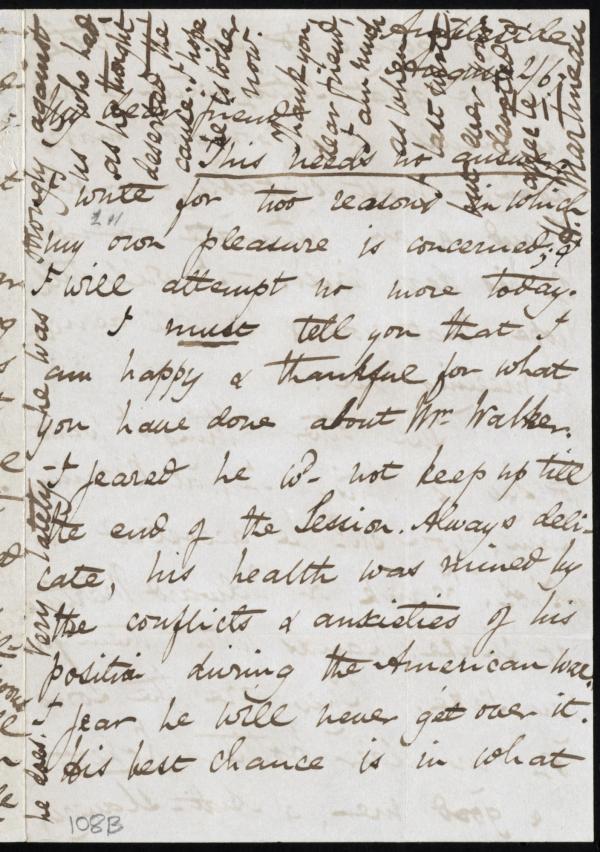 Ambleside
August 2/67
My dear friend
This needs no answer.
I write for two reasons in which
my own pleasure is concerned, &
I will attempt no more today.
I must tell you that I
am happy & thankful for what
you have done about Mr. Walker.
I feared he wd. not keep up till
the end of the Session. Always deli-
cate, his health was ruined by
the conflicts & anxieties of his
position during the American war.
I fear he will never get over it.
His best chance is in what
108B
he does. I
Very lately he was strongly against
us who had
as he thought
deserted the
cause. I hope
he is wiser
now.
Thank you
dear friend!
I am much
as when
I last
but ever your
devoted
H. Martineau